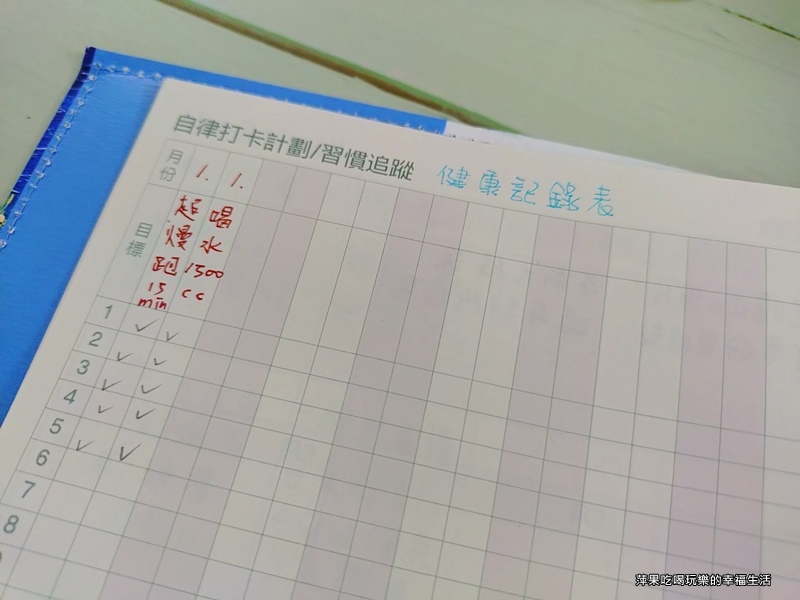 自律打卡計劃/習慣追蹤 健康記錄表
月份 1. 1.
目標 超慢跑15min 喝水1500cc
1 ✓ ✓
2 ✓ ✓
3 ✓ ✓
4 ✓ ✓
5 ✓ ✓
6
7
8
萍果吃喝玩樂的幸福生活